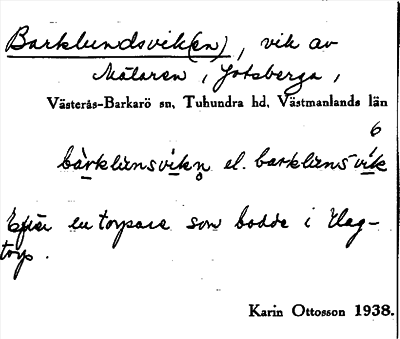 Barklundsvik(en), vik av
Mälaren, Gotsberga,
Västerås-Barkarö sn, Tuhundra hd, Västmanlands län
6
barklünsvikn el. barklünsvik
Efter en torpare som bodde i Hag-
torp.
Karin Ottosson 1938.